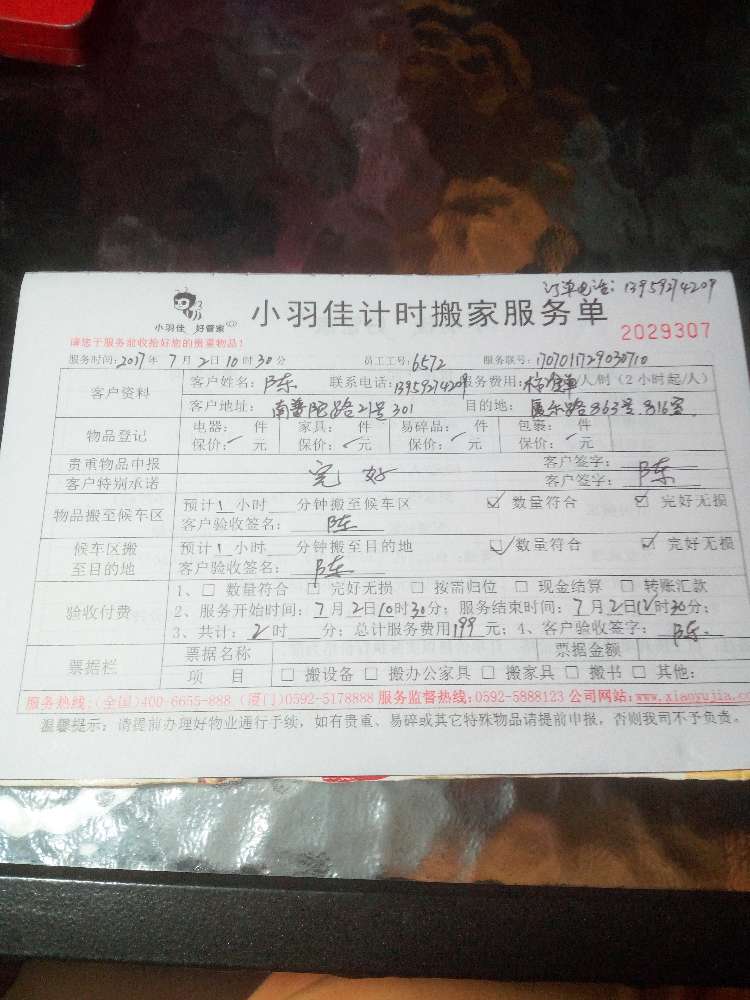 订单电话：13959274209
小羽佳 好管家
小羽佳计时搬家服务单
2029307
请您于服务前收拾好您的贵重物品！
服务时间：2017年7月2日10时30分 员工工号：6572 服务联号：1707011729030710
客户资料
客户姓名：陈 联系电话：13959274209 服务费用： /人/时（2小时起/人）
客户地址：南普陀路21号301 目的地：厦禾路863号816室
物品登记
电器： 件 家具： 件 易碎品： 件 包裹： 件
保价： 元 保价： 元 保价： 元 保价： 元
贵重物品申报 客户签字：
客户特别承诺 完好 客户签字：陈
物品搬至候车区
预计1小时 分钟搬至候车区 ☑ 数量符合 ☑ 完好无损
客户验收签名：陈
候车区搬至目的地
预计1小时 分钟搬至目的地 ☑ 数量符合 ☑ 完好无损
客户验收签名：陈
验收付费
1、□ 数量符合 □ 完好无损 □ 按需归位 □ 现金结算 □ 转账汇款
2、服务开始时间：7月2日10时30分；服务结束时间：7月2日12时30分；
3、共计：2时 分；总计服务费用199元；4、客户验收签字：陈
票据栏
票据名称 票据金额
项 目 □ 搬设备 □ 搬办公家具 □ 搬家具 □ 搬书 □ 其他：
服务热线：(全国)400-6655-888 (厦门)0592-5178888 服务监督热线：0592-5888123 公司网站：www.xiaoyujia.co
温馨提示：请提前办理好物业通行手续，如有贵重、易碎或其它特殊物品请提前申报，否则我司不予负责。